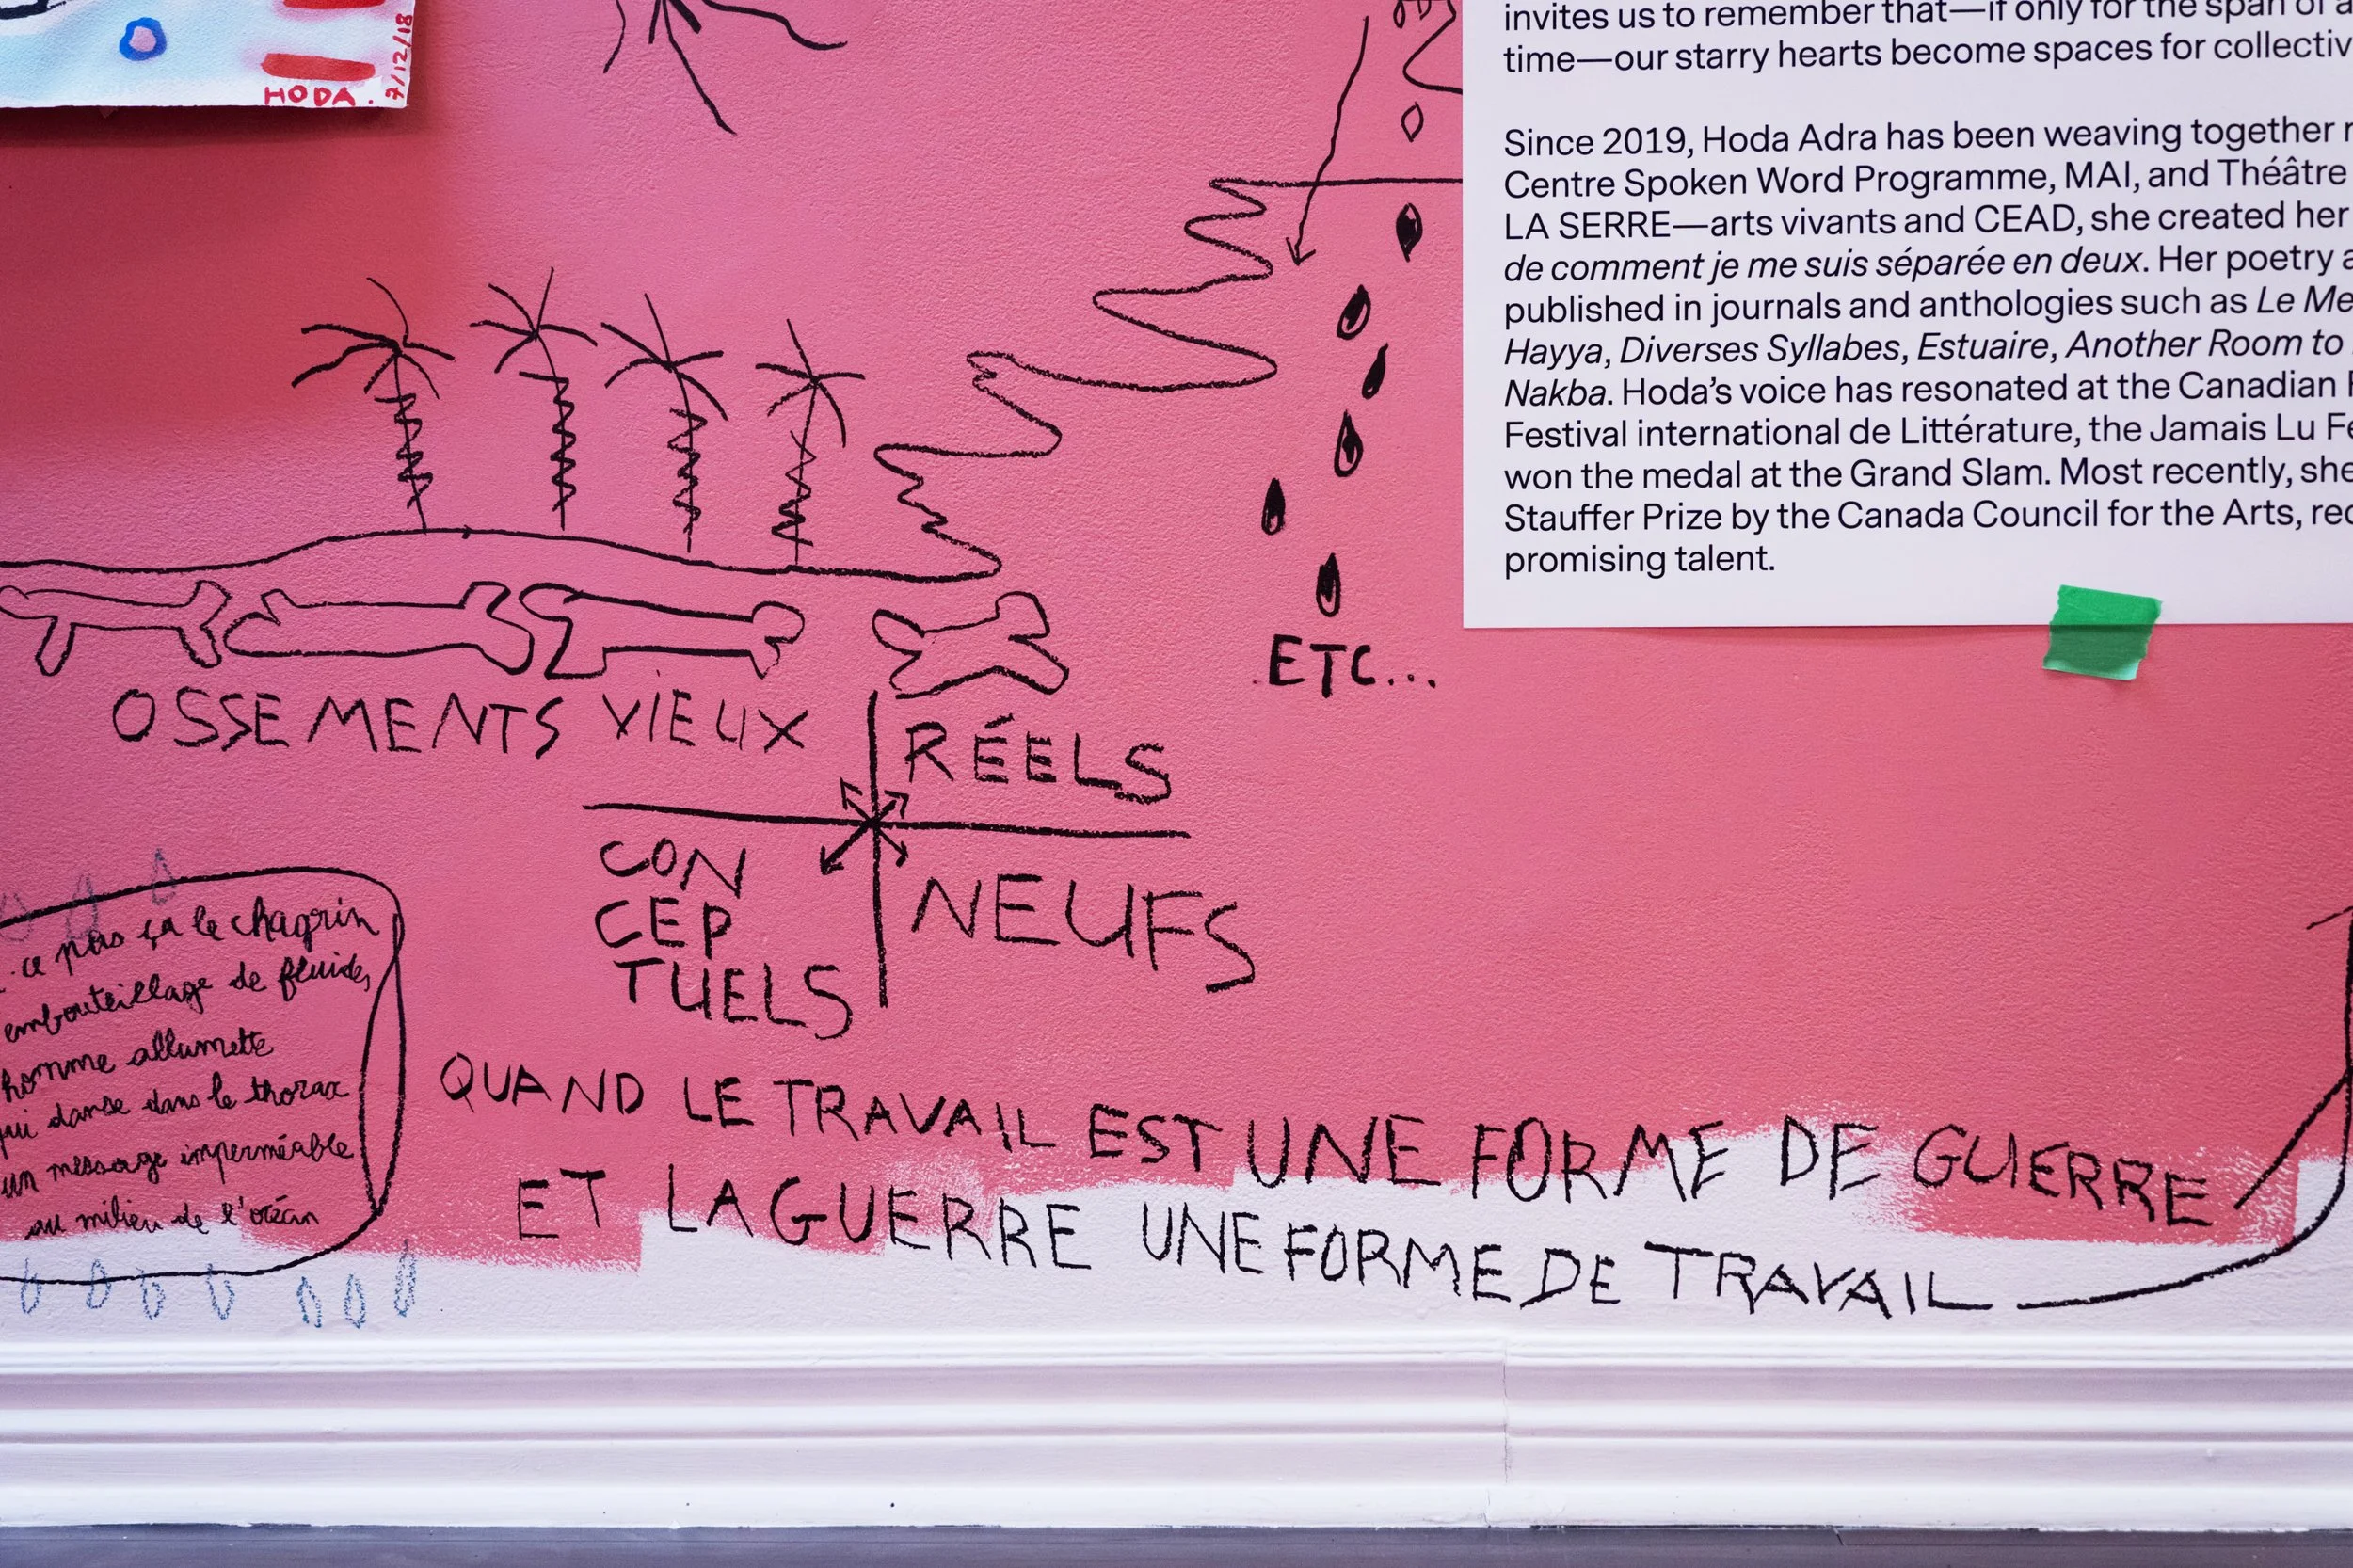 HODA.
7/12/18
invites us to remember that—if only for the span of a
time—our starry hearts become spaces for collectiv
Since 2019, Hoda Adra has been weaving together
Centre Spoken Word Programme, MAI, and Théâtre
LA SERRE—arts vivants and CEAD, she created her
de comment je me suis séparée en deux. Her poetry a
published in journals and anthologies such as Le Me
Hayya, Diverses Syllabes, Estuaire, Another Room to
Nakba. Hoda’s voice has resonated at the Canadian
Festival international de Littérature, the Jamais Lu Fe
won the medal at the Grand Slam. Most recently, she
Stauffer Prize by the Canada Council for the Arts, rec
promising talent.
ETC...
OSSEMENTS VIEUX
RÉELS
CON
CEP
TUELS
NEUFS
ce pas ça le chagrin
embouteillage de fluides,
homme allumette
qui danse dans le thorax
un message imperméable
au milieu de l'océan
QUAND LE TRAVAIL EST UNE FORME DE GUERRE
ET LA GUERRE UNE FORME DE TRAVAIL